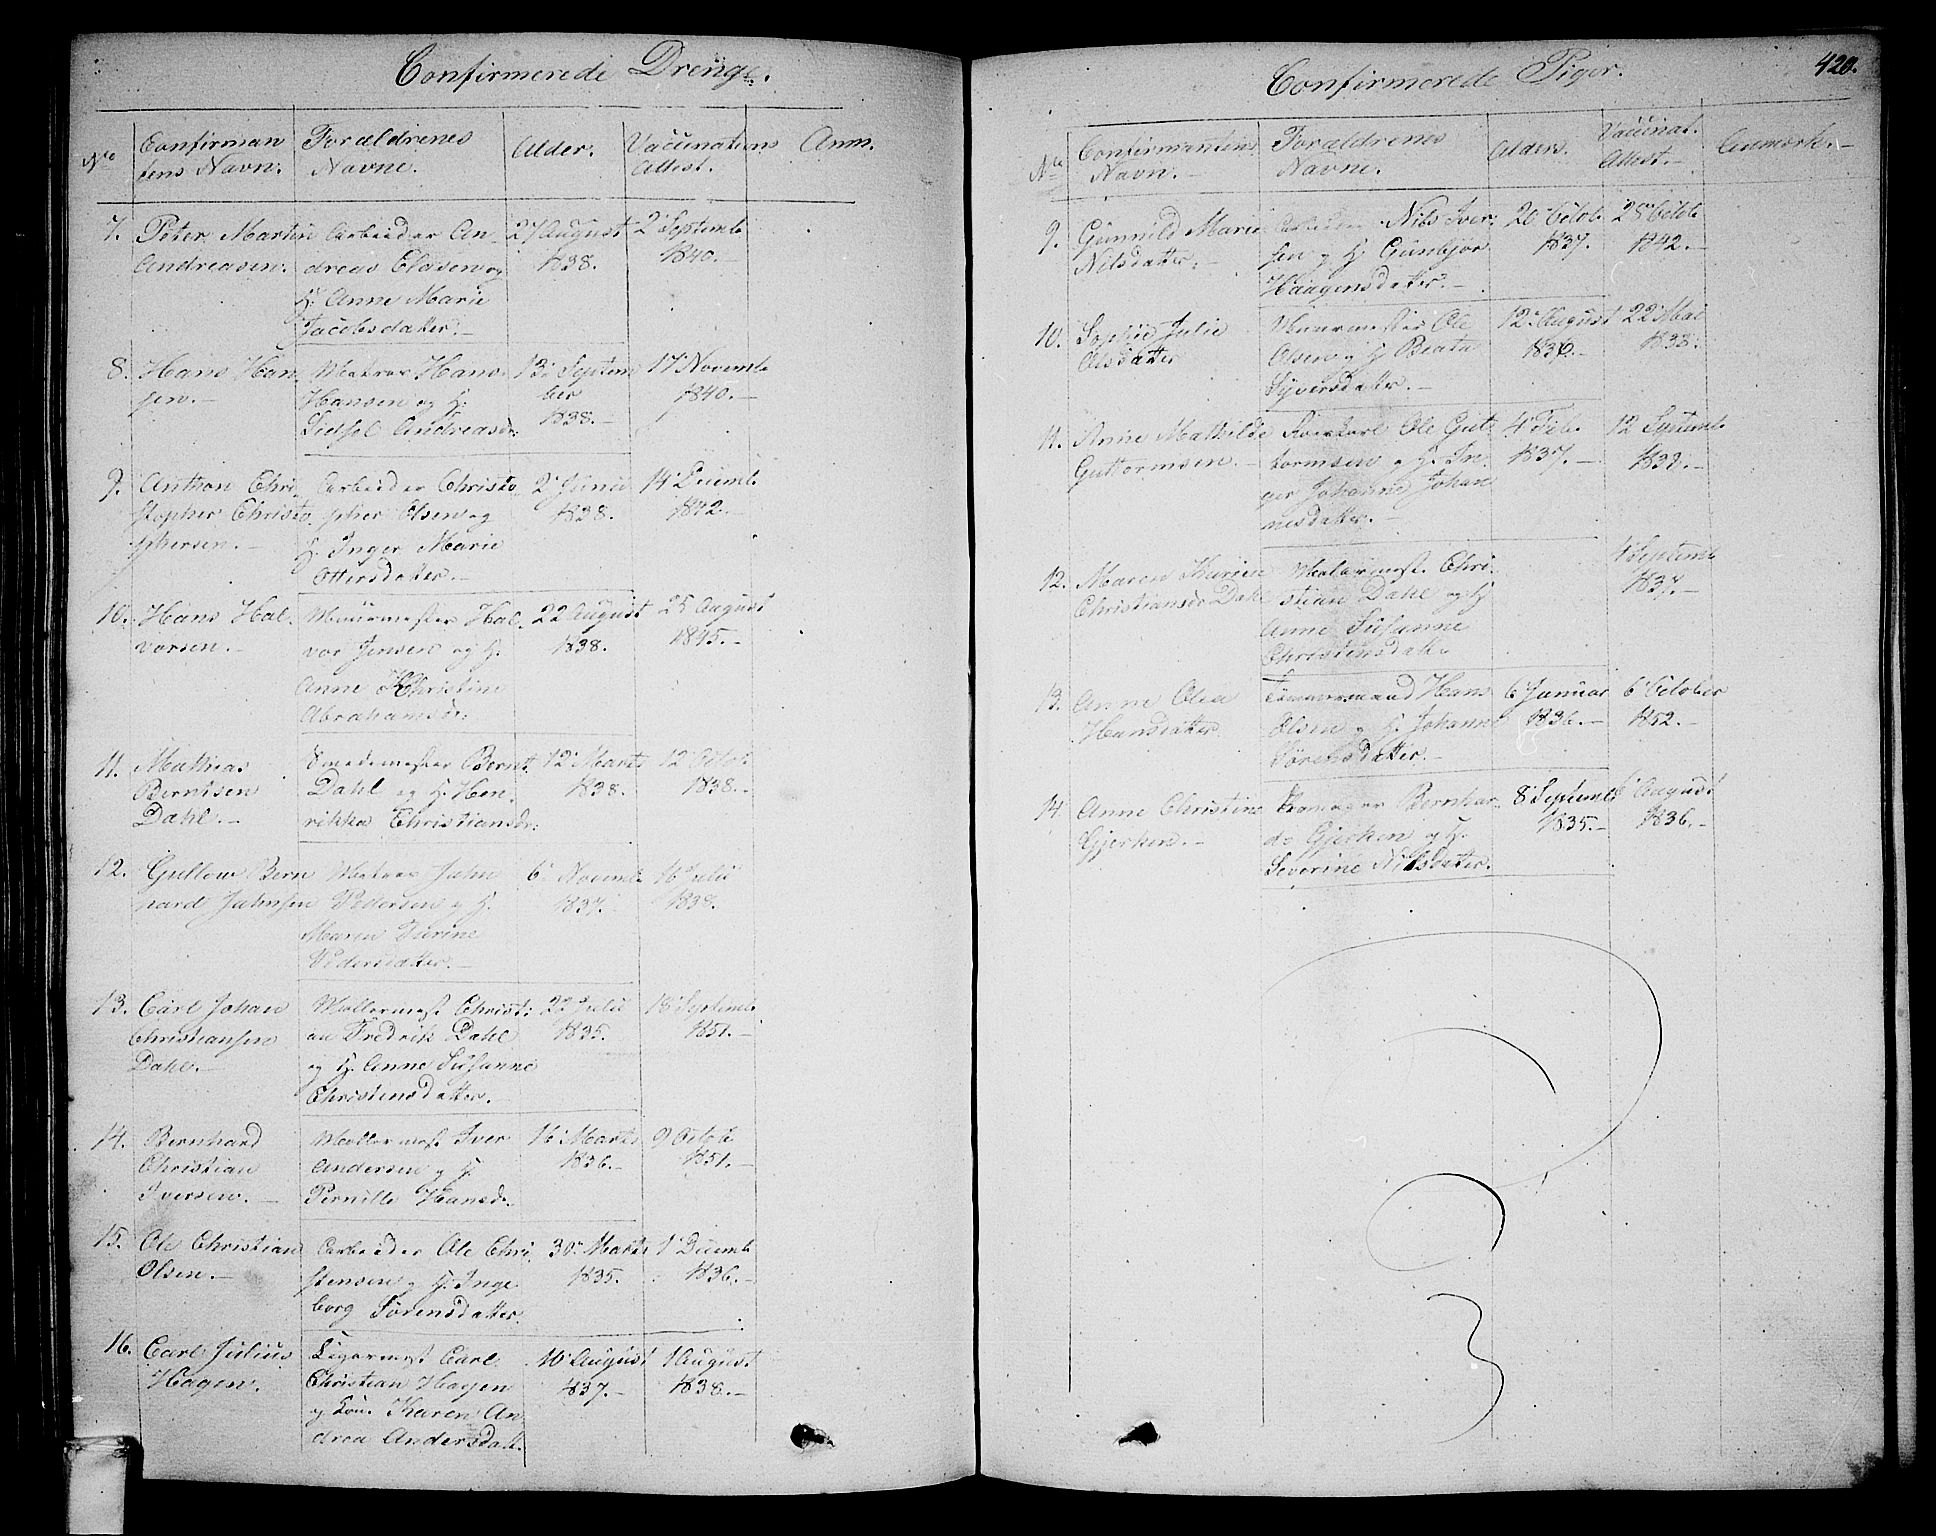 Confirmerede Drenge.
No
Confirman
tens Navn.
Forældrenes
Navne.
Alder.
Vaccinations
Attest.
Anm.
7. Peter Martin
Andreasen.
Arbeider An-
dreas Olasen og
H. Anne Marie
Jacobsdatter.
27 August
1838.
2 Septemb
1840.
8. Hans Han
sen.
Matros Hans
Hansen og H.
Andreasd:
13 Septem
ber
1838.
17 Novemb
1840.
9. Anthon Chri
stopher Christo
phersen.
Arbeider Christo
pher Olsen og
H. Inger Marie
Ottersdatter.
2 Juni
1838.
14 Decemb
1842.
10. Hans Hal
vorsen.
Muurmester Hal
vor Jensen og H.
Anne Christine
Abrahamsd:
22 August
1838.
25 August
1845.
11. Mathias
Berntsen
Dahl.
Smedemester Bernt
Dahl og H. Hen
rikka Christiansd:
12 Marts
1838.
12 Octob
1838.
12. Gullow Bern
hard Jahnsen
Matros Jahn
Pedersen og H.
Maren Turine
Pedersdatter.
6 Novemb
1837.
16 Juli
1838.
13. Carl Johan
Christiansen
Dahl.
Møllermest Christi
an Fredrik Dahl
og H. Anne Susanne
Christensdatter.
22 Juli
1835.
18 Septemb
1851.
14. Bernhard
Christian
Iversen.
Møllermest Iver
Andersen og H.
Pernille Hansd.
16 Marts
1836.
9 Octob
1851.
15. Ole Christian
Olsen.
Arbeider Ole Chri
stensen og H. Inge
borg Sörensdatter.
30 Marts
1835.
1 Decemb
1836.
16. Carl Julius
Hagen.
Carl
Christian Hagen
og Karen An
drea Andersdatt.
10 August
1837.
1 August
1838.
Confirmerede Piger.
420.
No
Confirmantens
Navn.
Forældrenes
Navne.
Alders.
Vaccinat.
Attest.
Anmærk.
9. Gunnild Marie
Nilsdatter.
Arbeider Nils Iver
sen og H. Gunbjor
Haagensdatter.
20 Octob
1837.
25 Octob
1842.
10. Sophie Julie
Olsdatter
Muurmester Ole
Olsen og H. Beata
Syversdatter.
12 August
1836.
22 Mai
1838.
11. Anne Mathilde
Guttormsen.
Ole Gut
tormsen og H. In
ger Johanne Johan
nesdatter.
4 Feb.
1837.
12 Septemb
12. Maren Thurine
Christiansd. Dahl
Chri
stian Dahl og H
Anne Susanne
Christensdatt.
4 Septemb
1837.
13. Anne Olea
Hansdatter
Tömmermand Hans
Olsen og H. Johanne
Sörensdatter.
6 Januar
1836.
6 October
1852.
14. Anne Christine
Gjerken.
Bernhar
d Gjerken og H.
Severine Nilsdatter.
8 Septemb
1835.
6 August
1836.